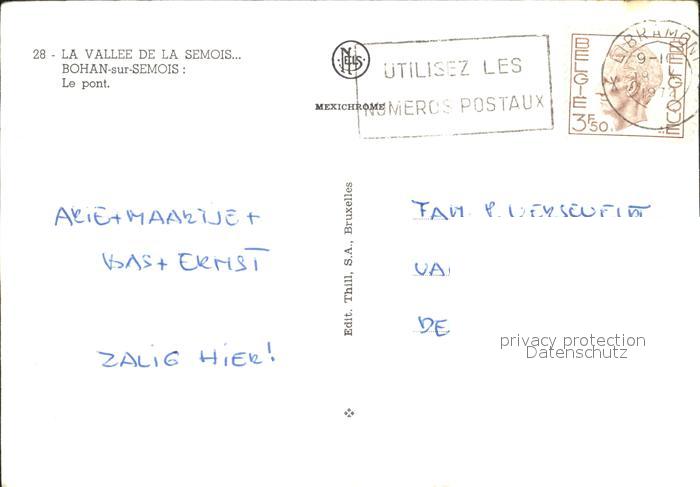 28 - LA VALLEE DE LA SEMOIS...
BOHAN-sur-SEMOIS :
Le pont.
NELS
MEXICHROME
UTILISEZ LES
NUMEROS POSTAUX
LIBRAMONT
9-10
BELGIE
BELGIQUE
3F50
Edit. Thill, S.A., Bruxelles
ARIE+MAARTJE+
BAS+ERNST
ZALIG HIER!
FAM. P.
DE
privacy protection
Datenschutz